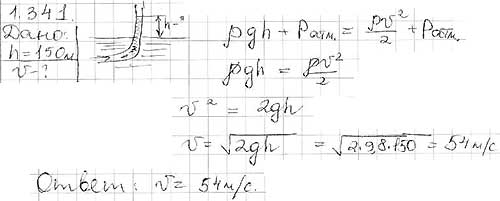 1.341.
Дано:
h = 150м
v - ?
h - ?
ρgh + Pатм. = ρv²/2 + Pатм.
ρgh = ρv²/2
v² = 2gh
v = √2gh = √2·9,8·150 = 54 м/с.
Ответ: v = 54 м/с.